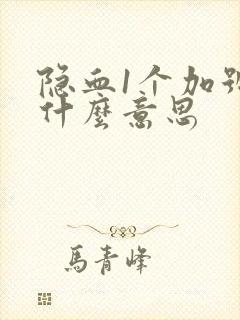 隐血1个加号
什麼意思
馬青峰